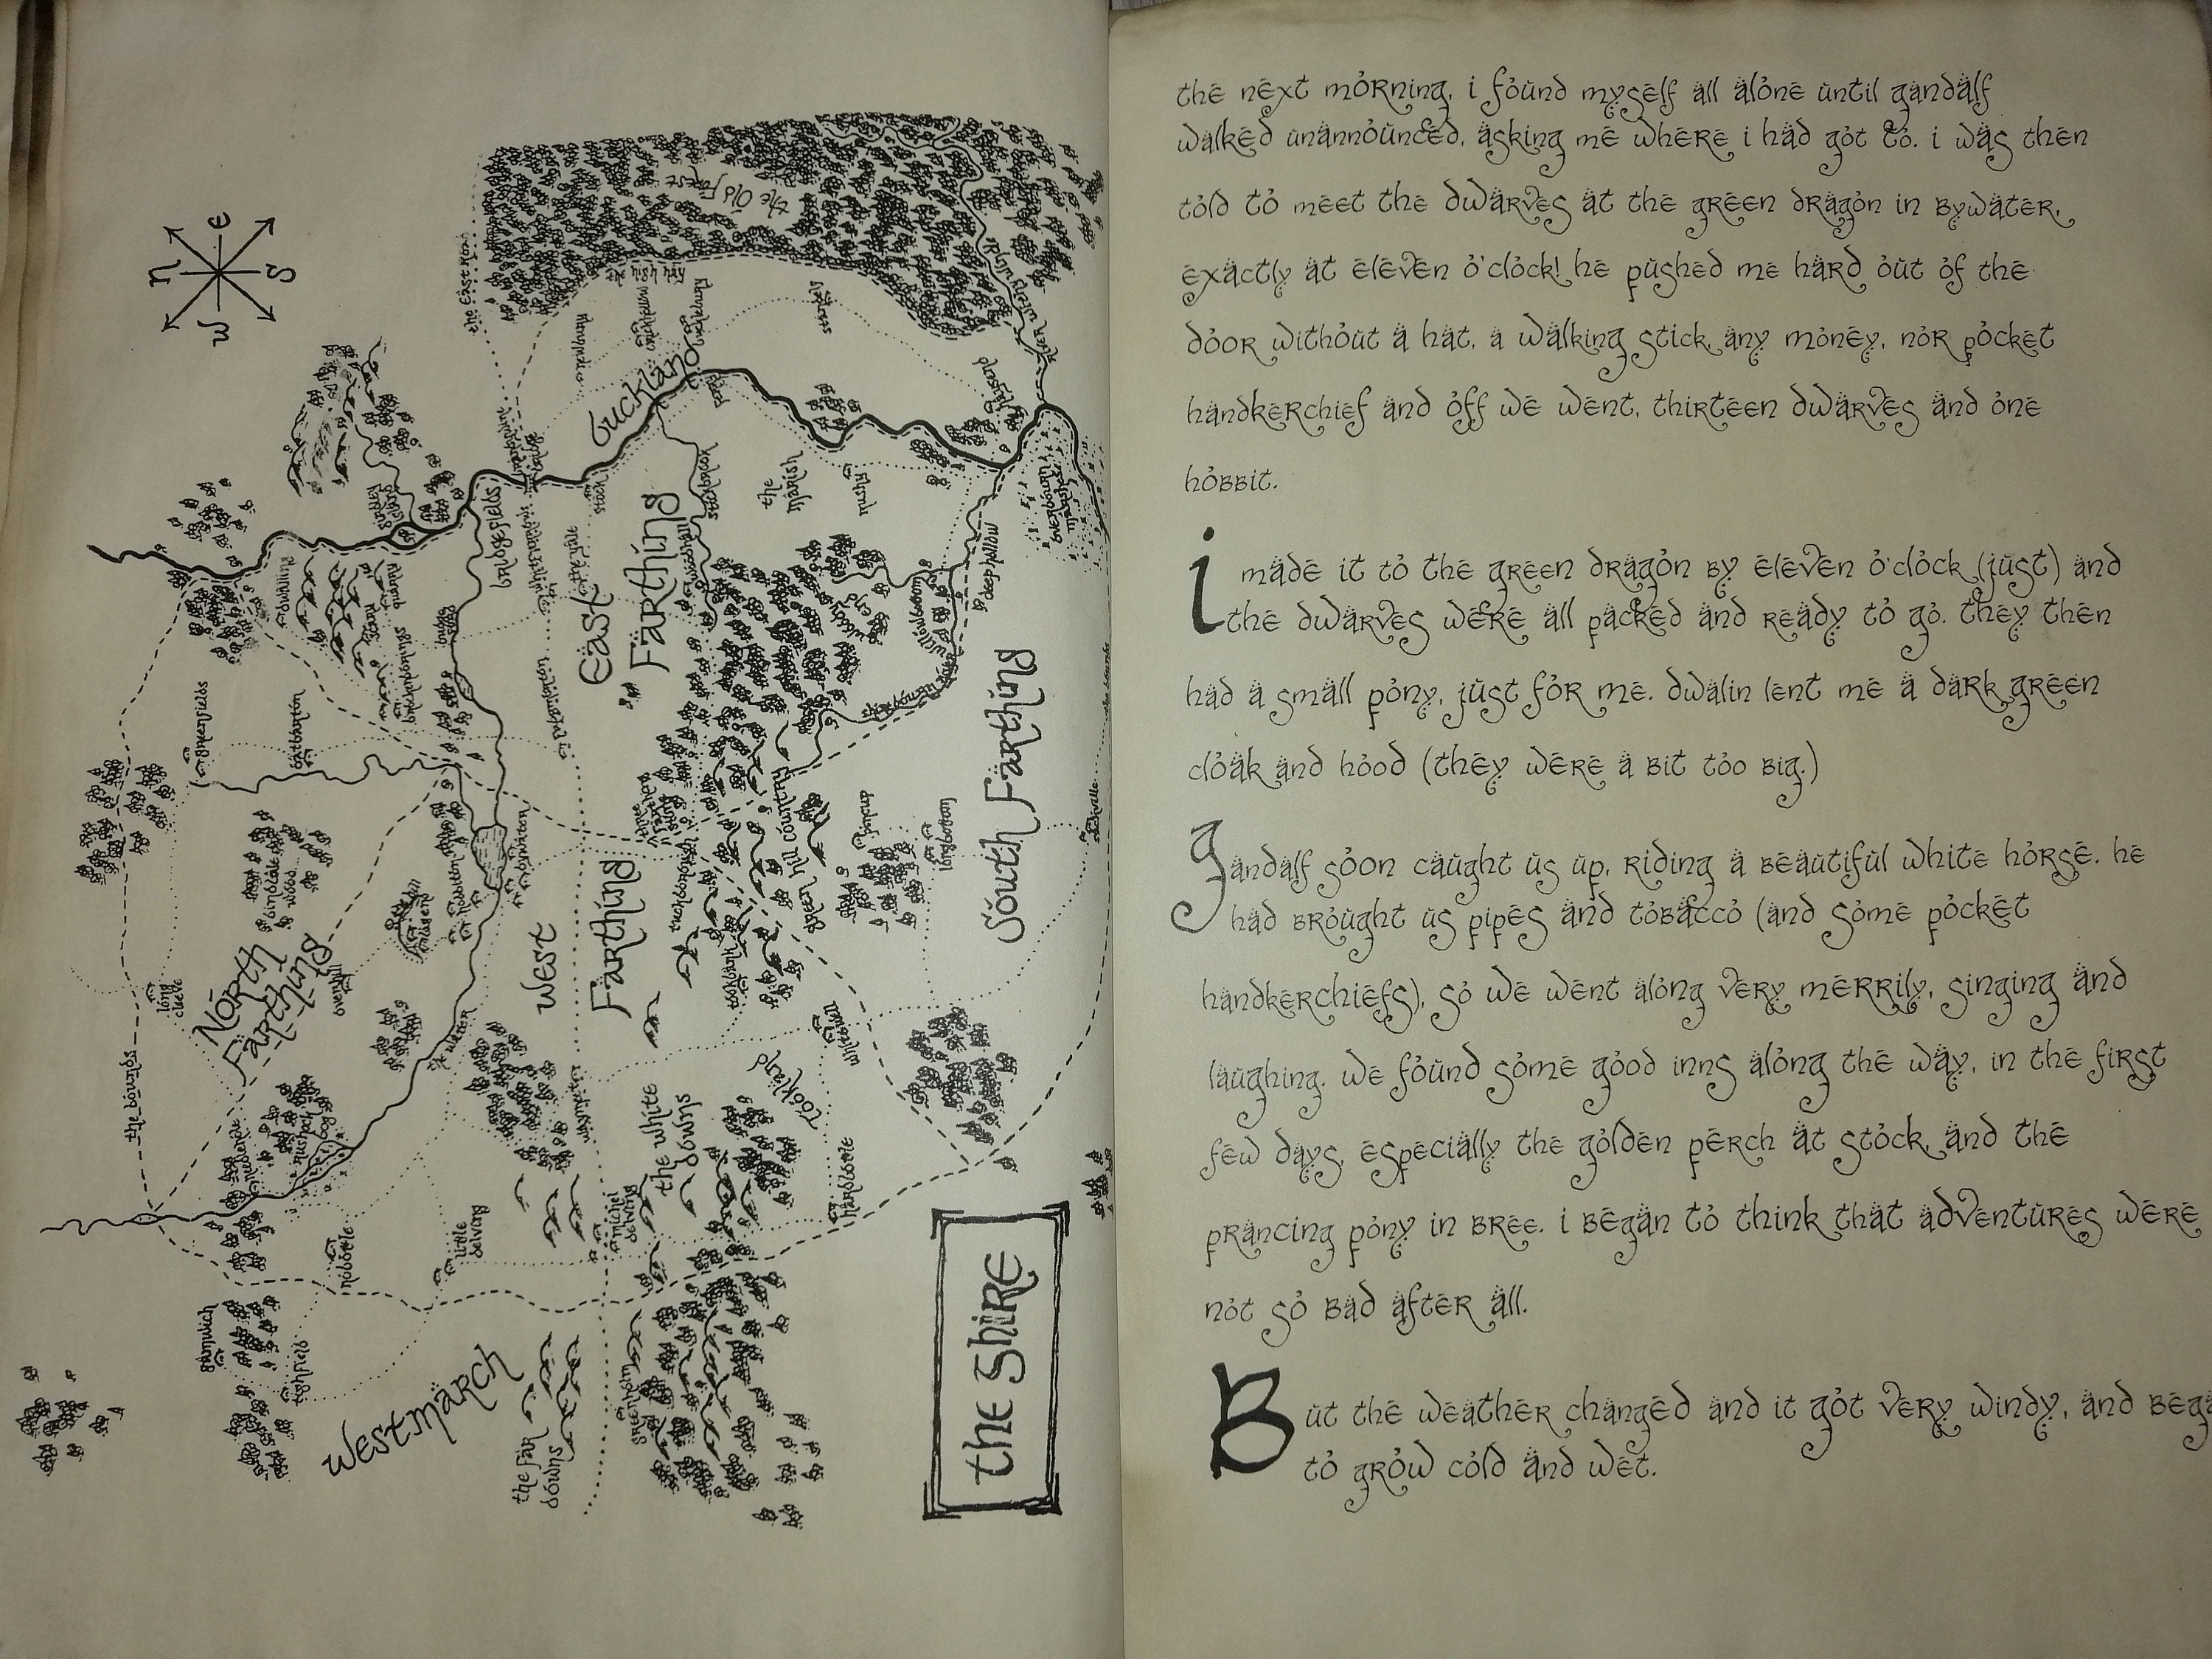 the Shire
n
e
s
w
the Old Forest
the East road
Buckland
stock
the marish
rushy
Bridgefields
East
Farthing
woodhall
stockbrook
deephallow
willowbottom
woody end
South Farthing
sackville
longbottom
pincup
green hill country
tuckborough
three farthing stone
bywater
hobbiton
overhill
bindbale wood
oatbarton
greenfields
dwaling
brockenborings
scary
quarry
long cleeve
North
Farthing
the bounds
West
Farthing
waymeet
the white
downs
Tookland
whitwell
hardbottle
michel delving
little delving
nobottle
rushock bog
needlehole
gamwich
tighfield
Westmarch
the Far
downs
greenholm
the next morning, i found myself all alone until gandalf
walked unannounced, asking me where i had got to. i was then
told to meet the dwarves at the green dragon in bywater,
exactly at eleven o'clock! he pushed me hard out of the
door without a hat, a walking stick, any money, nor pocket
handkerchief and off we went, thirteen dwarves and one
hobbit.
i made it to the green dragon by eleven o'clock (just) and
the dwarves were all packed and ready to go. they then
had a small pony, just for me. dwalin lent me a dark green
cloak and hood (they were a bit too big.)
gandalf soon caught us up, riding a beautiful white horse. he
had brought us pipes and tobacco (and some pocket
handkerchiefs), so we went along very merrily, singing and
laughing. we found some good inns along the way, in the first
few days, especially the golden perch at stock, and the
prancing pony in bree. i began to think that adventures were
not so bad after all.
But the weather changed and it got very windy, and bega
to grow cold and wet.